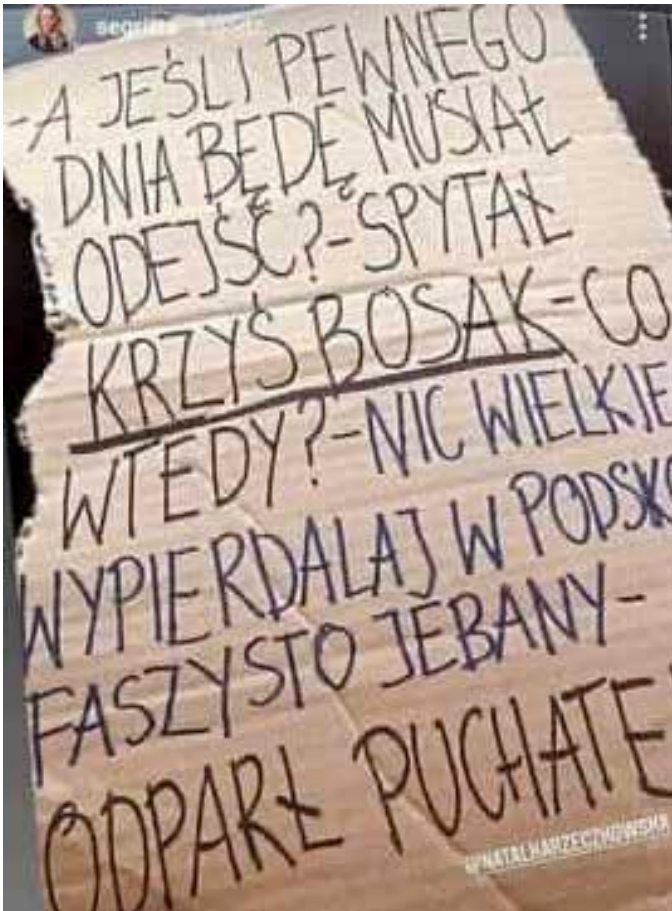 segritta
-A JEŚLI PEWNEGO
DNIA BĘDĘ MUSIAŁ
ODEJŚĆ?-SPYTAŁ
KRZYŚ BOSAK-CO
WTEDY?-NIC WIELKIE
WYPIERDALAJ W PODSK
FASZYSTO JEBANY-
ODPARŁ PUCHATE
@NATALIIARZECZKOWSKA